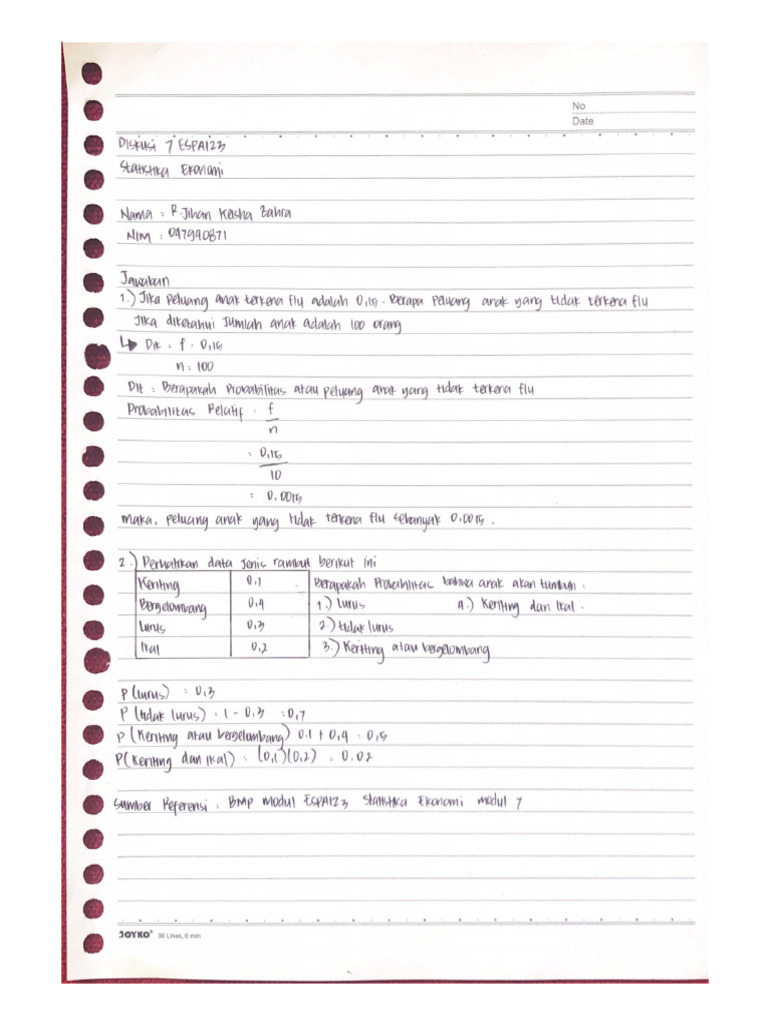 No
Date
Diskusi 7 ESPA4123
Statistika Ekonomi
Nama : R. Jihan Keisha Zahra
NIM : 047990871
Jawaban
1.) Jika peluang anak terkena flu adalah 0,15. Berapa peluang anak yang tidak terkena flu
Jika diketahui jumlah anak adalah 100 orang
↳ Dik : f : 0,15
n : 100
Dit : Berapakah Probabilitas atau peluang anak yang tidak terkena flu
Probabilitas Relatif : f
n
= 0,15
10
= 0.0015
maka, peluang anak yang tidak terkena flu sebanyak 0.0015.
2.) Perhatikan data jenis rambut berikut ini
Keriting 0,1 Berapakah Probabilitas bahwa anak akan tumbuh :
Bergelombang 0,4 1.) Lurus 4.) Keriting dan Ikal.
Lurus 0,3 2.) tidak lurus
Ikal 0,2 3.) Keriting atau bergelombang
P (lurus) = 0,3
P (tidak lurus) = 1 - 0,3 = 0,7
P (Keriting atau bergelombang) 0.1 + 0,4 = 0,5
P (Keriting dan Ikal) = (0,1)(0,2) = 0.02
Sumber Referensi : BMP modul ESPA4123 Statistika Ekonomi modul 7
JOYKO® 36 Lines, 6 mm